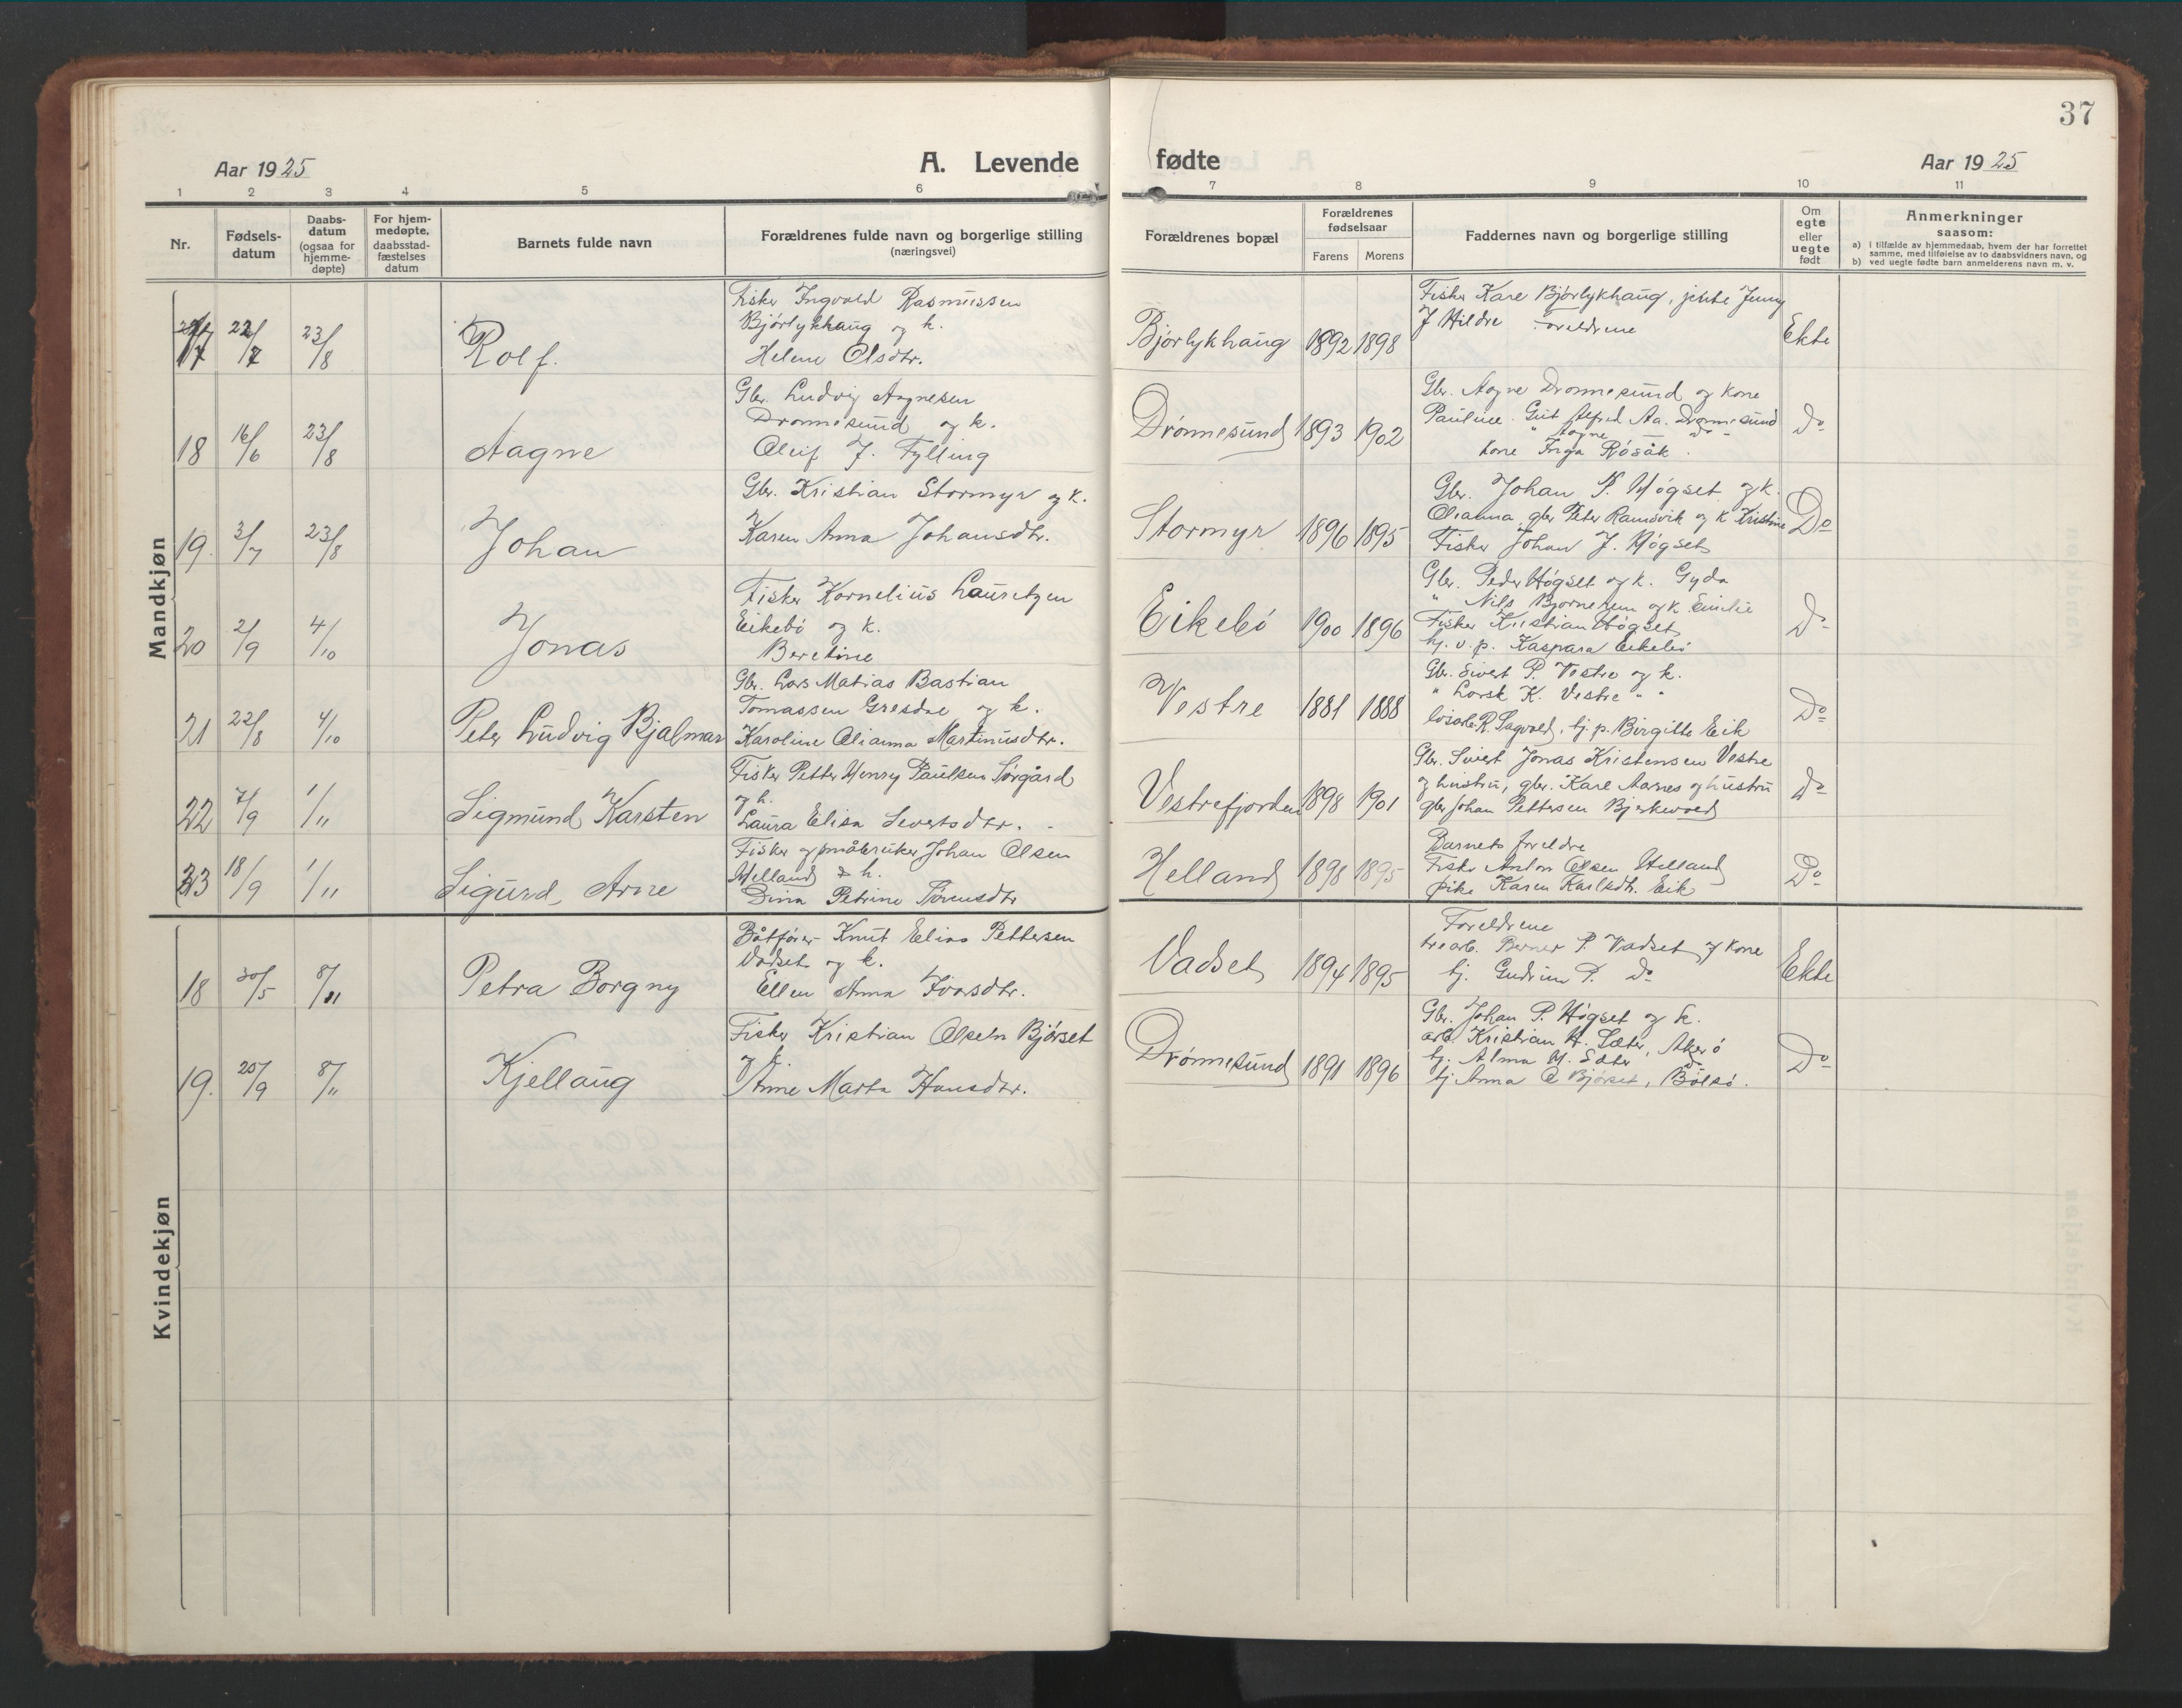 37
Aar 1925
A. Levende fødte
Aar 1925
1 2 3 4 5 6 7 8 9 10 11
Nr.
Fødsels-
datum
Daabs-
datum
(ogsaa for
hjemme-
døpte)
For hjem-
medøpte,
daabsstad-
fæstelses
datum
Barnets fulde navn
Forældrenes fulde navn og borgerlige stilling
(næringsvei)
Forældrenes bopæl
Forældrenes
fødselsaar
Farens Morens
Faddernes navn og borgerlige stilling
Om
egte
eller
uegte
født
Anmerkninger
saasom:
a) i tilfælde av hjemmedaab, hvem der har forrettet
samme, med tilføielse av to daabsvidners navn, og
b) ved uegte fødte barn anmelderens navn m. v.
Mandkjøn
17 22/7 23/8 Rolf.
Fisker Ingvald Rasmussen
Bjørlykhaug og k.
Helene Olsdtr.
Bjørlykhaug 1892 1898
Fisker Kare Bjørlykhaug, jente Jenny
J Hildre Foreldrene
Ekte
18 16/6 23/8 Aagne
Gbr. Ludvig Aagnesen
Drønnesund og k.
Oleif J. Fylling
Drønnesund 1893 1902
Gbr. Aagne Drønnesund og kone
Pauline. Gut Alfred Aa. Drønnesund
" Aagne do -
kone Inga Røsåk.
Do
19. 3/7 23/8 Johan
Gbr. Kristian Stormyr og k.
Karen Anna Johansdtr.
Stormyr 1896 1895
Gbr. Johan P. Høgset og k.
Olianna, gbr Peter Ramsvik og k Kristine
Fisker Johan J. Høgset
Do
20 2/9 4/10 Jonas
Fisker Kornelius Lauritzen
Eikebø og k.
Beretine
Eikebø 1900 1896
Gbr. Peder Høgset og k. Gyda
" Nils Bjørnerem og k Emilie
Fisker Kristian Høgset
hj. v. p. Kaspara Eikebø
Do
21 22/8 4/10 Peter Ludvig Hjalmar
Gbr. Lars Matias Bastian
Tomassen Gresdae og k.
Karoline Olianna Martinusdtr.
Vestre 1881 1888
Gbr. Sivert P. Vestre og k.
" K. Vestre " "
R. Sagvold, hj. p. Birgitte Eik
Do
22 7/9 1/11 Sigmund Karsten
Fisker Petter Henry Paulsen Sørgård
og h.
Laura Elisa Severtsdtr.
Vestrefjorden 1898 1901
Gbr. Sivert Jonas Kristensen Vestre
og hustru, gbr. Karl Aarnes og hustru
gbr Johan Pettersen Bjerkevold
Do
23 18/9 1/11 Sigurd Arne
Fisker og småbruker Johan Olsen
Helland & h.
Dina Petrine
Helland 1898 1895
Barnets foreldre
Fisker Anton Olsen Helland
pike Karen Karlsdtr. Eik
Do
Kvindekjøn
18 30/5 8/11 Petra Borgny
Båtfører Knut Elias Pettersen
Vadset og k.
Ellen Anna Ivarsdtr.
Vadset 1894 1895
Foreldrene
trearb. Berner P. Vadset og kone
hj. Gudrun P. Do
Ekte
19. 20/9 8/11 Kjellaug
Fisker Kristian Olsen Bjørset
og k.
Anne Marta Hansdtr.
Drønnesund 1891 1896
Gbr. Johan P. Høgset og k.
arb. Kristian H. Sæter, Akerø
hj. Alma M. Sæter do
hj. Anna O Bjørset, Bolsø.
Do